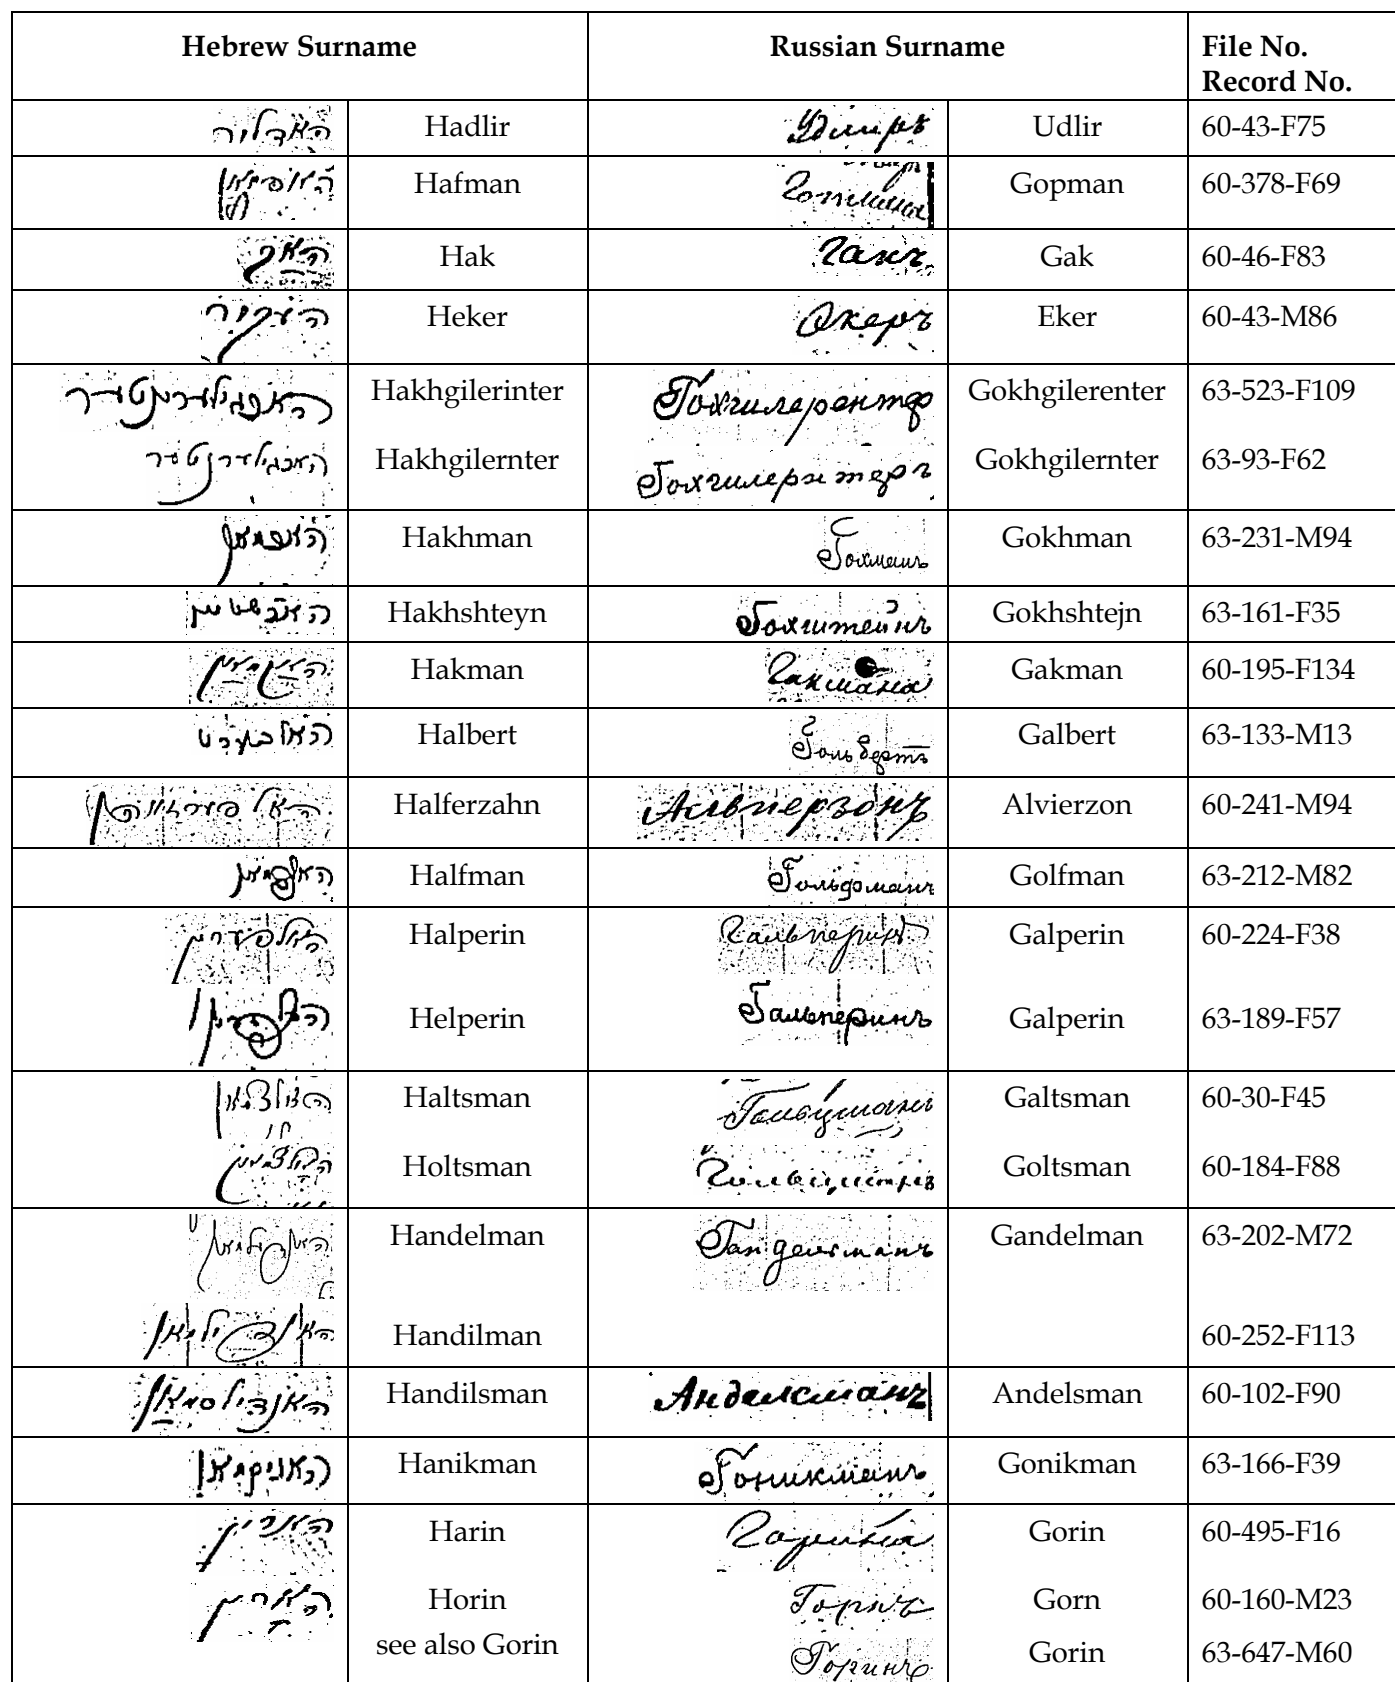 Hebrew Surname Russian Surname File No.
Record No.
האדליר Hadlir Удлиръ Udlir 60-43-F75
האפמאן Hafman Гопмана Gopman 60-378-F69
האק Hak Гакъ Gak 60-46-F83
העקיר Heker Экеръ Eker 60-43-M86
האכגילערינטער Hakhgilerinter Гохгилерентер Gokhgilerenter 63-523-F109
האכגילערנטער Hakhgilernter Гохгилернтеръ Gokhgilernter 63-93-F62
האכמאן Hakhman Гохманъ Gokhman 63-231-M94
האכשטיין Hakhshteyn Гохштейнъ Gokhshtejn 63-161-F35
האקמאן Hakman Гакмана Gakman 60-195-F134
האלבערט Halbert Гольбертъ Galbert 63-133-M13
Halferzahn Альпперзонъ Alvierzon 60-241-M94
האלפמאן Halfman Гольфманъ Golfman 63-212-M82
האלפערין Halperin Гальперинъ Galperin 60-224-F38
העלפערין Helperin Гальперинъ Galperin 63-189-F57
האלצמאן Haltsman Гальцманъ Galtsman 60-30-F45
האלצמאן Holtsman Гольцманъ Goltsman 60-184-F88
האנדילמאן Handelman Гандельманъ Gandelman 63-202-M72
האנדילמאן Handilman 60-252-F113
האנדילסמאן Handilsman Анделсманъ Andelsman 60-102-F90
האניקמאן Hanikman Гоникманъ Gonikman 63-166-F39
הארין Harin Горина Gorin 60-495-F16
הארין Horin Горнъ Gorn 60-160-M23
see also Gorin Горинъ Gorin 63-647-M60